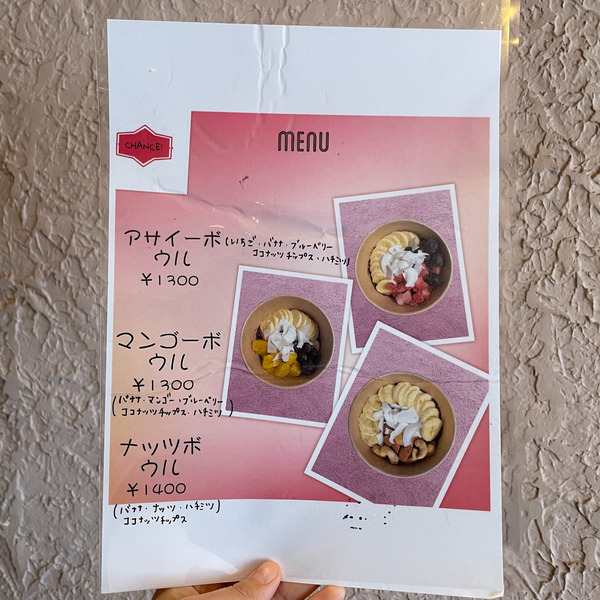 MENU
CHANCE!
アサイーボ
ウル
¥1300
(いちご・バナナ・ブルーベリー
ココナッツチップス・ハチミツ)
マンゴーボ
ウル
¥1300
(バナナ・マンゴー・ブルーベリー
ココナッツチップス・ハチミツ)
ナッツボ
ウル
¥1400
(バナナ・ナッツ・ハチミツ)
ココナッツチップス